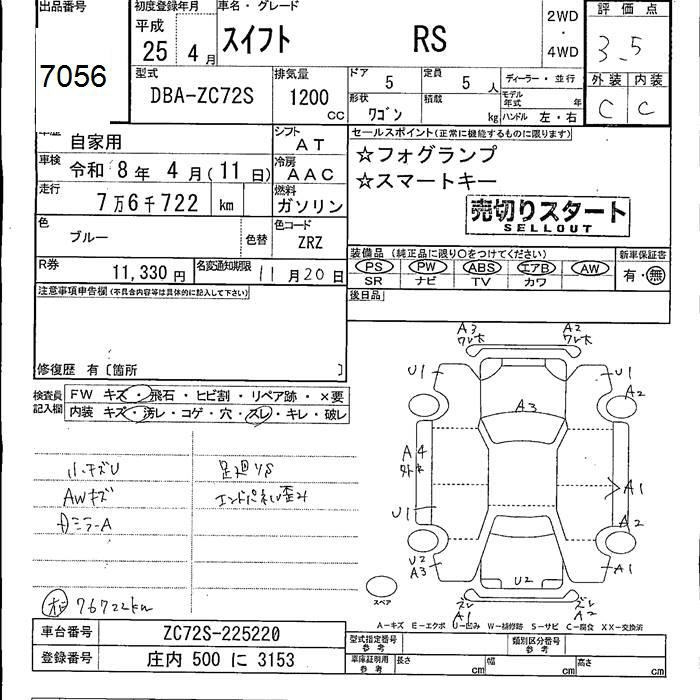 出品番号
7056
初度登録年月
平成
25 4 月
車名・グレード
スイフト RS
2WD
・
4WD
評価点
3.5
外装 内装
C C
型式
DBA-ZC72S
排気量
1200 cc
ドア 5
定員 5 人
形状 ワゴン
積載 kg
ディーラー・並行
モデル年式 年
ハンドル 左・右
車歴 自家用
シフト AT
車検 令和 8 年 4 月 ( 11 日)
冷房 AAC
走行 7万6千722 km
燃料 ガソリン
色 ブルー
色替
色コード ZRZ
R券 11,330 円
名変通知期限 11 月 20 日
セールスポイント(正常に機能するものに限ります)
☆フォグランプ
☆スマートキー
売切りスタート
SELLOUT
装備品 (純正品に限り○をつけてください)
PS PW ABS エアB AW
SR ナビ TV カワ
新車保証書
有・無
後日品
注意事項申告欄(不具合内容等は具体的に記入して下さい)
修復歴 有〔箇所 〕
検査員記入欄
FW キズ・飛石・ヒビ割・リペア跡・×要
内装 キズ・汚レ・コゲ・穴・スレ・キレ・破レ
小キズU
AWキズ
ミラーA
足廻りS
エンドパネル歪み
76722km
A3
ワレ大
A2
ワレ大
U1
U1
A2
A3
A4
U1
A1
A2
U2
A3
U2
A1
ズレ
A1
ズレ
A2
スペア
A-キズ E-エクボ U-凹み W-補修跡 S-サビ C-腐食 XX-交換済
車台番号 ZC72S-225220
登録番号 庄内 500 に 3153
型式指定番号 参考
類別区分番号 参考
車庫証明用 参考
長さ cm 幅 cm 高さ cm